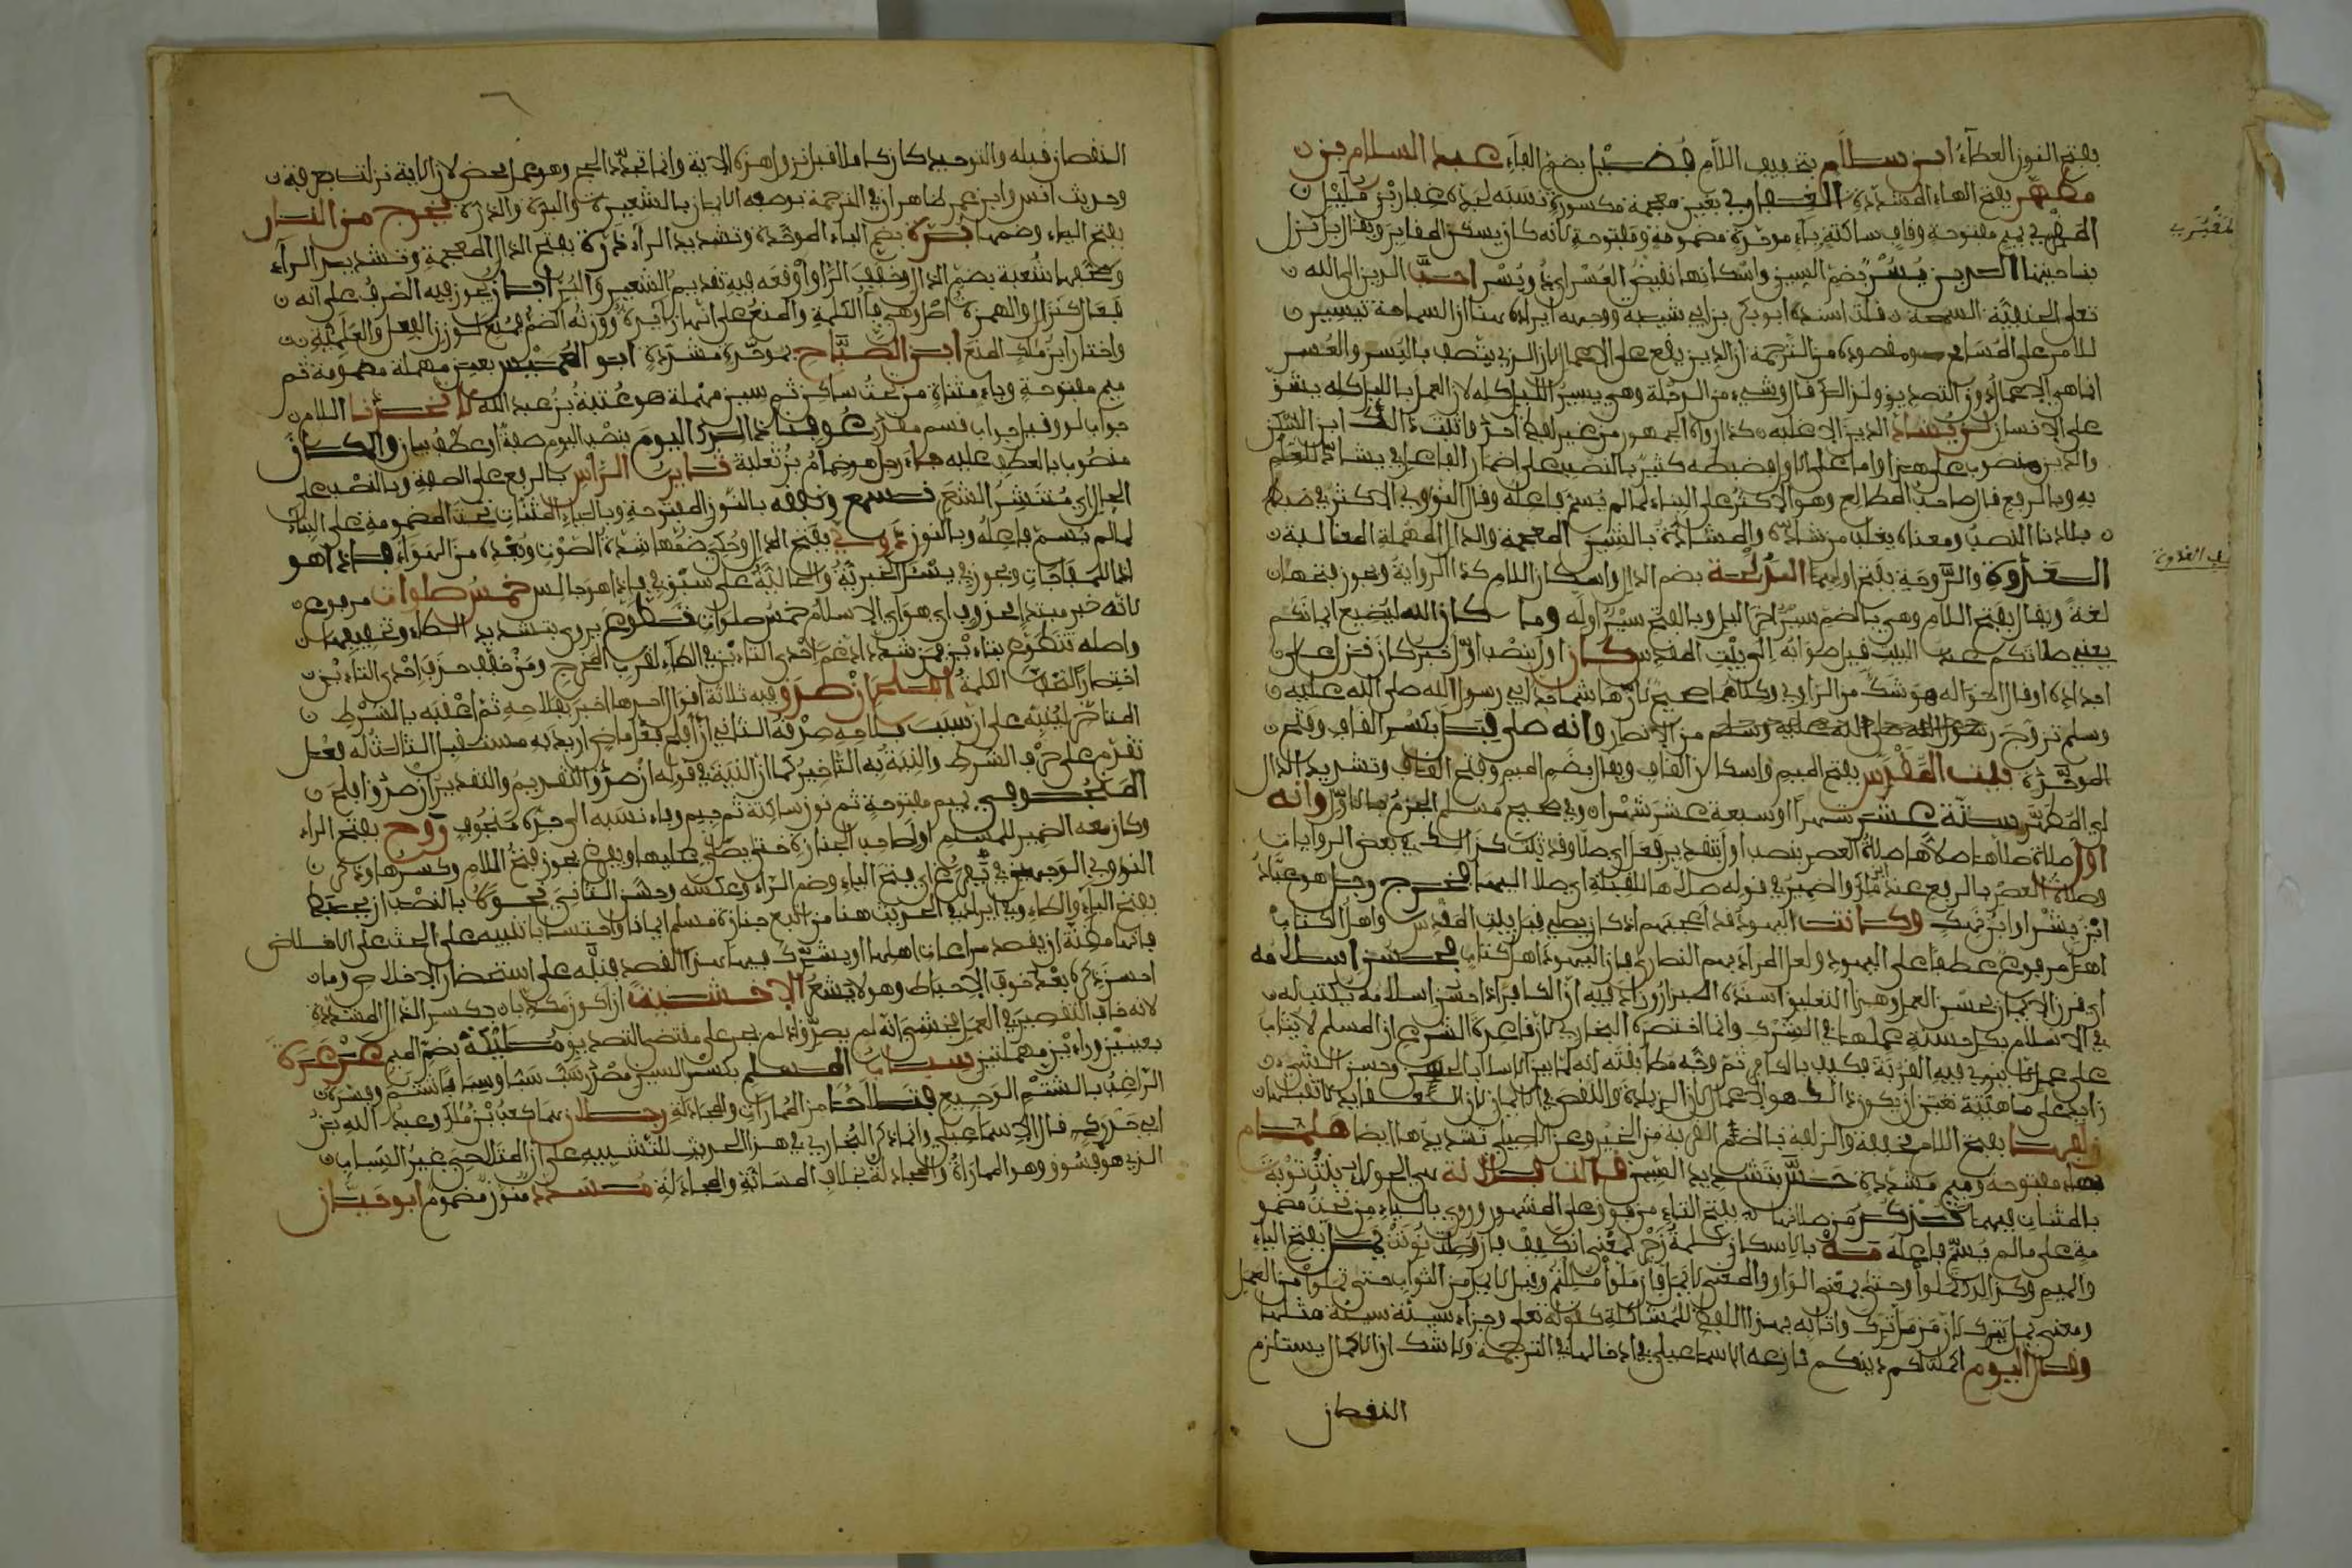 بفتح النون العطاء ابن سلام بتخفيف اللام فضيل بضم الفاء عبد السلام بن
مطهر بفتح الهاء المشددة الغفاري بغين معجمة مكسورة نسبة لجده غفار بن مليل
المقبري بميم مفتوحة وقاف ساكنة وباء موحدة مضمومة ومفتوحة لانه كان يسكن المقابر ويقال بل نزل
بناحيتها الدين يسر بضم السين واسكانها نقيض العسر اي ذو يسر احب الدين الى الله
تعلى الحنيفية السمحة قلت اسنده ابو بكر بن ابي شيبة ووجه ايراده هنا ان السماحة تيسير
للامر على المسامح ومقصوده من الترجمة ان الدين يقع على الاعمال لان الذي يتصف باليسر والعسر
انما هي الاعمال دون التصديق ولذلك قال وشيء من الدلجة وهي سير الليل كله لان العمل بالليل كله يشق
على الانسان لن يشاد الدين الا غلبه كذا رواه الجمهور من غير لفظ احد واثبت ذلك ابن السكن
والدين منصوب على هذا واما على الاول فضبطه كثير بالنصب على اضمار الفاعل في يشاد للعلم
به وبالرفع قال صاحب المطالع وهو الاكثر على البناء لما لم يسم فاعله وقال النووي الاكثر في ضبط
بلادنا النصب ومعناه يغلب من شاده والمشادة بالشين المعجمة والدال المهملة المغالبة
الغدوة والروحة بفتح اولهما الدلجة بضم الدال واسكان اللام كذا الرواية ويجوز فتحها
لغة ويقال بفتح اللام وهي بالضم سير اخر الليل وبالفتح سير اوله وما كان الله ليضيع ايمانكم
يعني صلاتكم عند البيت قيل صوابه الى بيت المقدس كان اول بنصب اول خبر كان نزل على
اجداده او قال اخواله هو شك من الراوي وكلاهما صحيح لان هاشما جد ابي رسول الله صلى الله عليه
وسلم تزوج من الانصار وانه صلى قبل بكسر القاف وفتح
الموحدة بيت المقدس بفتح الميم واسكان القاف ويقال بضم الميم وفتح القاف وتشديد الدال
اي المطهر ستة عشر شهرا او سبعة عشر شهرا وفي صحيح مسلم الجزم بالاول وانه
اول صلاة صلاها صلاة العصر بنصب اول بتقدير فعل اي صلا وقد ثبت كذلك في بعض الروايات
وصلاة العصر بالرفع عند ابن ملك والضمير في قوله صلاها للقبلة اي صلا اليها فخرج رجل هو عباد
ابن بشر او ابن نهيك وكانت اليهود قد اعجبهم اذ كان يصلي قبل بيت المقدس واهل الكتاب
اهل مرفوع عطفا على اليهود ولعل المراد بهم النصارى فان اليهود اهل كتاب فحسن اسلامه
اي قرن الايمان بحسن العمل وهذا التعليق اسنده البزار وزاد فيه ان الكافر اذا احسن اسلامه يكتب له
في الاسلام بكل حسنة عملها في الشرك وانما اختصره البخاري لان قاعدة الشرع ان المسلم لا يثاب
على عمل لم ينو فيه القربة فكيف بالكافر
ما هيته تعين ان يكون ذلك هو الاعمال لان الزيادة والنقص في الايمان
زلفها بفتح اللام مخففة والزلفة بالضم القربة من الخير وعن الاصيلي تشديدها ايضا همام
بهاء مفتوحة وميم مشددة قالت فلانة هي الحولاء بنت تويت
بالمثنات فيهما تذكر من صلاتها بفتح التاء من فوق على المشهور وروي بالياء من تحت مضمو
مة على ما لم يسم فاعله مه بالاسكان كلمة زجر بمعنى اكفف فان وصلت نونت يمل بفتح الياء
والميم وكذلك تملوا وحتى بمعنى الواو والمعنى لا يمل وان مللتم وقيل لا يمل من الثواب حتى تملوا من العمل
ومعنى يمل يترك لان من مل ترك واتى به بهذا اللفظ للمشاكلة كقوله تعلى وجزاء سيئة سيئة مثلها
وقال اليوم اكملت لكم دينكم نازعه الاسماعيلي في ادخالها في الترجمة ولا شك ان الاكمال يستلزم
النقصان
المقبري
النقصان قبله والتوحيد كان كاملا قبل نزول هذه الاية وانما تجدد الحج وهو عمل محض لان الاية نزلت بعرفة
وحديث انس وابن عمر ظاهران في الترجمة بوصفه الايمان بالشعيرة والبرة والذرة يخرج من النار
بفتح الياء وضمها برة بضم الباء الموحدة وتشديد الراء ذرة بفتح الذال المعجمة وتشديد الراء
وصحفها شعبة بضم الذال وتخفيف الراء اوقعه فيه تقديم الشعير والبر ابان يجوز فيه الصرف على انه
فعال كغزال والهمزة اصل وهي فاء الكلمة والمنع على انها زائدة ووزنه افعل فمنع لوزن الفعل والعلمية
واختار ابن ملك المنع ابن الصباح بموحدة مشددة ابو العميس بعين مهملة مضمومة ثم
ميم مفتوحة وياء مثناة من تحت ساكن ثم سين مهملة هو عتبة بن عبد الله لاتخذنا اللام
جواب لو وقيل جواب قسم مقدر عرفنا ذلك اليوم بنصب اليوم صفة او عطف بيان والمكان
منصوب بالعطف عليه جاء رجل هو ضمام بن ثعلبة ثائر الراس بالرفع على الصفة وبالنصب على
الحال اي منتشر الشعر نسمع ونفقه بالنون المفتوحة وبالياء المثنات تحت المضمومة على البناء
لما لم يسم فاعله وبالنون دوي بفتح الدال وحكي ضمها شدة الصوت وبعده من الهواء فاذا هو
اذا للمفاجات ويجوز في يسئل الخبرية والحالية على سبق في فاذا هو جالس خمس صلوات مرفوع
لانه خبر مبتدا محذوف اي هو اي الاسلام خمس صلوات تطوع يروى بتشديد الطاء وتخفيفها
واصله تتطوع بتاءين فمن شدد ادغم احدى التاءين في الطاء لقرب المخرج ومن خفف حذف احدى التاءين
اختصارا لتخف الكلمة افلح ان صدق فيه ثلاثة اقوال احدها اخبر بفلاحه ثم اعقبه بالشرط
المتاخر لينبه على ان سبب فلاحه صدقه الثاني ان افلح فعل ماضي اريد به مستقبل الثالث له فعل
تقدم على حرف الشرط والنية به التاخير كما ان النية في قوله ان صدق التقديم والتقدير ان صدق افلح
المنجوفي بميم مفتوحة ثم نون ساكنة ثم جيم وفاء نسبة الى جده منجوف روح بفتح الراء
وكان معه الضمير للمسلم او لصاحب الجنازة حتى يصلى عليها ويفرغ يجوز فتح اللام وكسرها وذكر
النووي الوجهين في يفرغ اي فتح الياء وضم الراء وعكسه نحوه بالنصب ان يحبط
بفتح الياء والطاء وفي ايراده الحديث هنا من اتبع جنازة مسلم ايمانا واحتسابا تنبيه على الحث على الاخلاص
فانها مظنة ان يقصد مراعات اهلها او يشرك فيها هذا القصد فنبه على استحضار الاخلاص وما
احسن ذكره بعد خوف الاحباط وهو لا يشعر الا خشيت ان اكون مكذبا بكسر الذال المشددة
لانه خاف التقصير في العمل فخشي انه لم يصدق اذ لم يجر على مقتضى التصديق مليكة بضم الميم عرعرة
بعينين وراءين مهملتين سباب المسلم بكسر السين مصدر سب سبا وسبابا شتم وفسره
الراغب بالشتم الوجيع فتلاحا من المماراة والمجادلة رجلان هما كعب بن ملك وعبد الله بن
ابي حدرد قال الاسماعيلي وانما ذكر البخاري في هذا الحديث للتنبيه على ان المتلاحي غير السباب
الذي هو فسوق وهو المماراة والمجادلة بخلاف المسابة والمجادلة مسدد منون مضموم ابو حيان